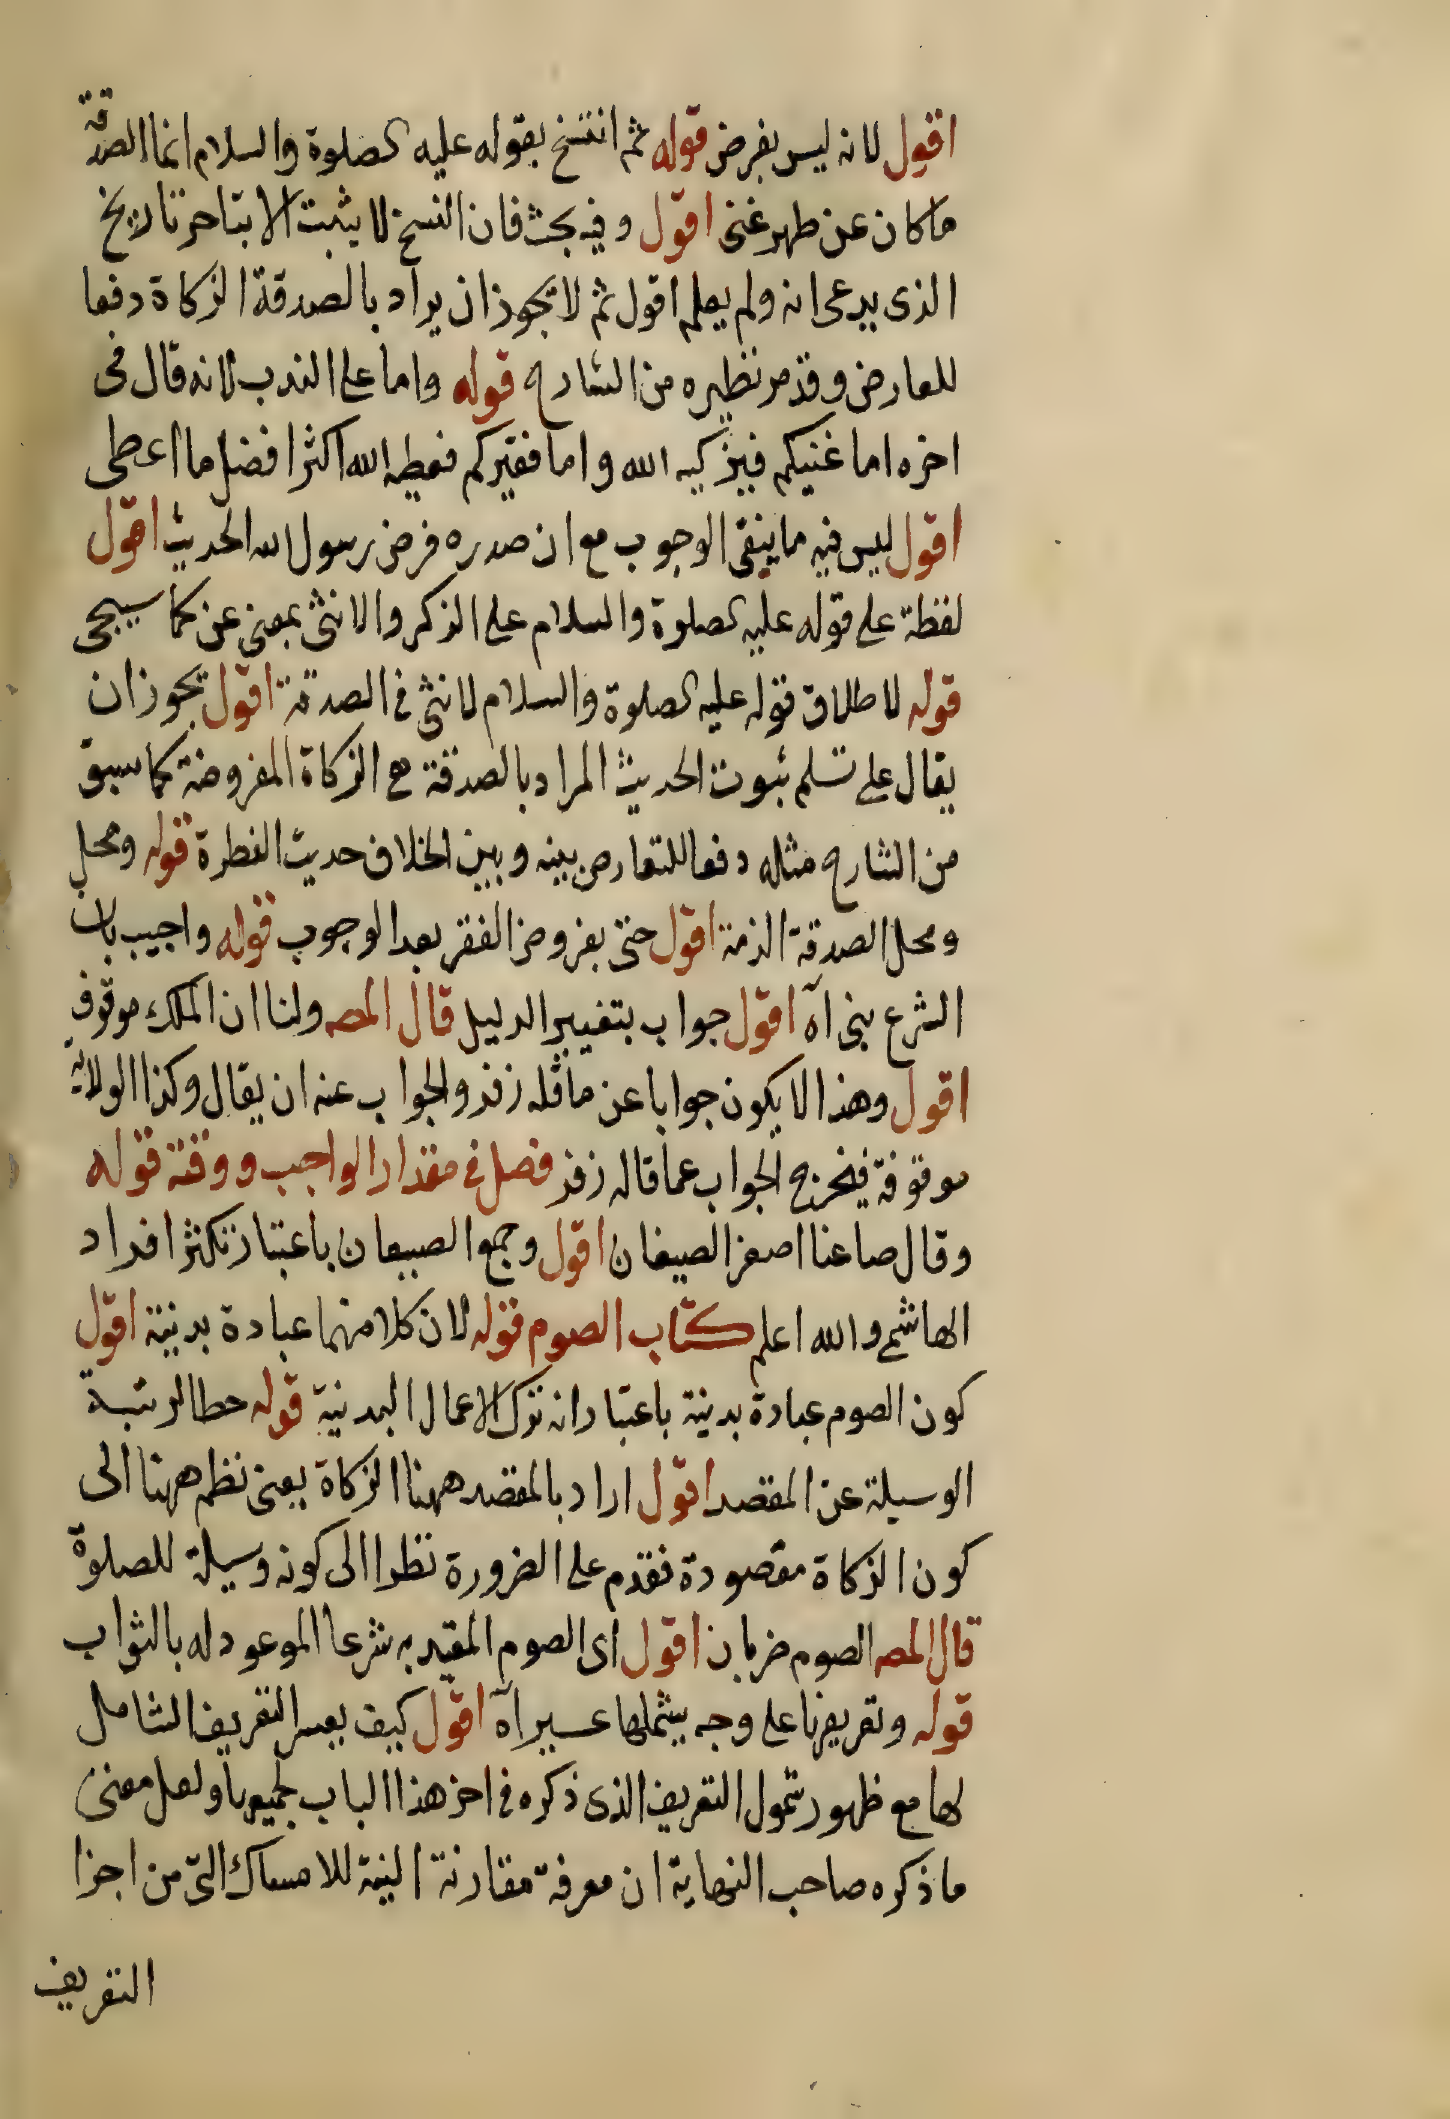 اقول لانه ليس بفرض قوله ثم انتسخ بقوله عليه الصلوة والسلام انما الصدقة
ما كان عن ظهر غنى اقول وفيه بحث فان النسخ لا يثبت الا بتاخر تاريخ
الذى يدعى انه ولم يعلم اقول ثم لا يجوز ان يراد بالصدقة الزكاة دفعا
للعارض وقد مر نظيره من الشارح قوله واما على الندب لانه قال فى
اخره اما غنيكم فيزكيه الله واما فقيركم فعطيه الله اكثر افضل ما اعطى
اقول ليس فيه ما ينفى الوجوب مع ان صدره فرض رسول الله الحديث اقول
لفظة على قوله عليه الصلوة والسلام على الذكر والانثى بمعنى عن كما سيجى
قوله لاطلاق قوله عليه الصلوة والسلام لانثى فى الصدقة اقول يجوز ان
يقال على تسلم ثبوت الحديث المراد بالصدقة مع الزكاة المفروضة كما سبق
من الشارح مثله دفعا للتعارض بينه وبين الخلاف حديث الفطرة قوله ومحل
ومحل الصدقة الذمة اقول حتى بفروض الفقر بعد الوجوب قوله واجيب بان
الشرع بنى اه اقول جواب بتغيير الدليل قال المصه ولنا ان الملك موقوف
اقول وهذا لا يكون جوابا عن ما قله زفر والجواب عنه ان يقال وكذا الولاية
موقوفة فيخرج الجواب عما قاله زفر فصل فى مقدار الواجب ووقته قوله
وقال صاعنا اصغر الصيعان اقول وجمع الصيعان باعتبار تكثر افراد
الهاشمى والله اعلم كتاب الصوم قوله لان كلا منهما عبادة بدنية اقول
كون الصوم عبادة بدينة باعتبار انه ترك الاعمال البدنية قوله حطا لرتبة
الوسيلة عن المقصد اقول اراد بالمقصد ههنا الزكاة يعنى نظم ههنا الى
كون الزكاة مقصودة فقدم على الضرورة نظرا الى كونه وسيلة للصلوة
قال المصه الصوم ضربان اقول اى الصوم المقيد به شرعا الموعود له بالثواب
قوله وتعريفها على وجه يشملها عسير اه اقول كيف يعسر التعريف الشامل
لها مع ظهور شمول التعريف الذى ذكره فى اخر هذا الباب لجميعها ولعل معنى
ما ذكره صاحب النهاية ان معرفة مقارنة النية للامساك التى من اجزا
التعريف